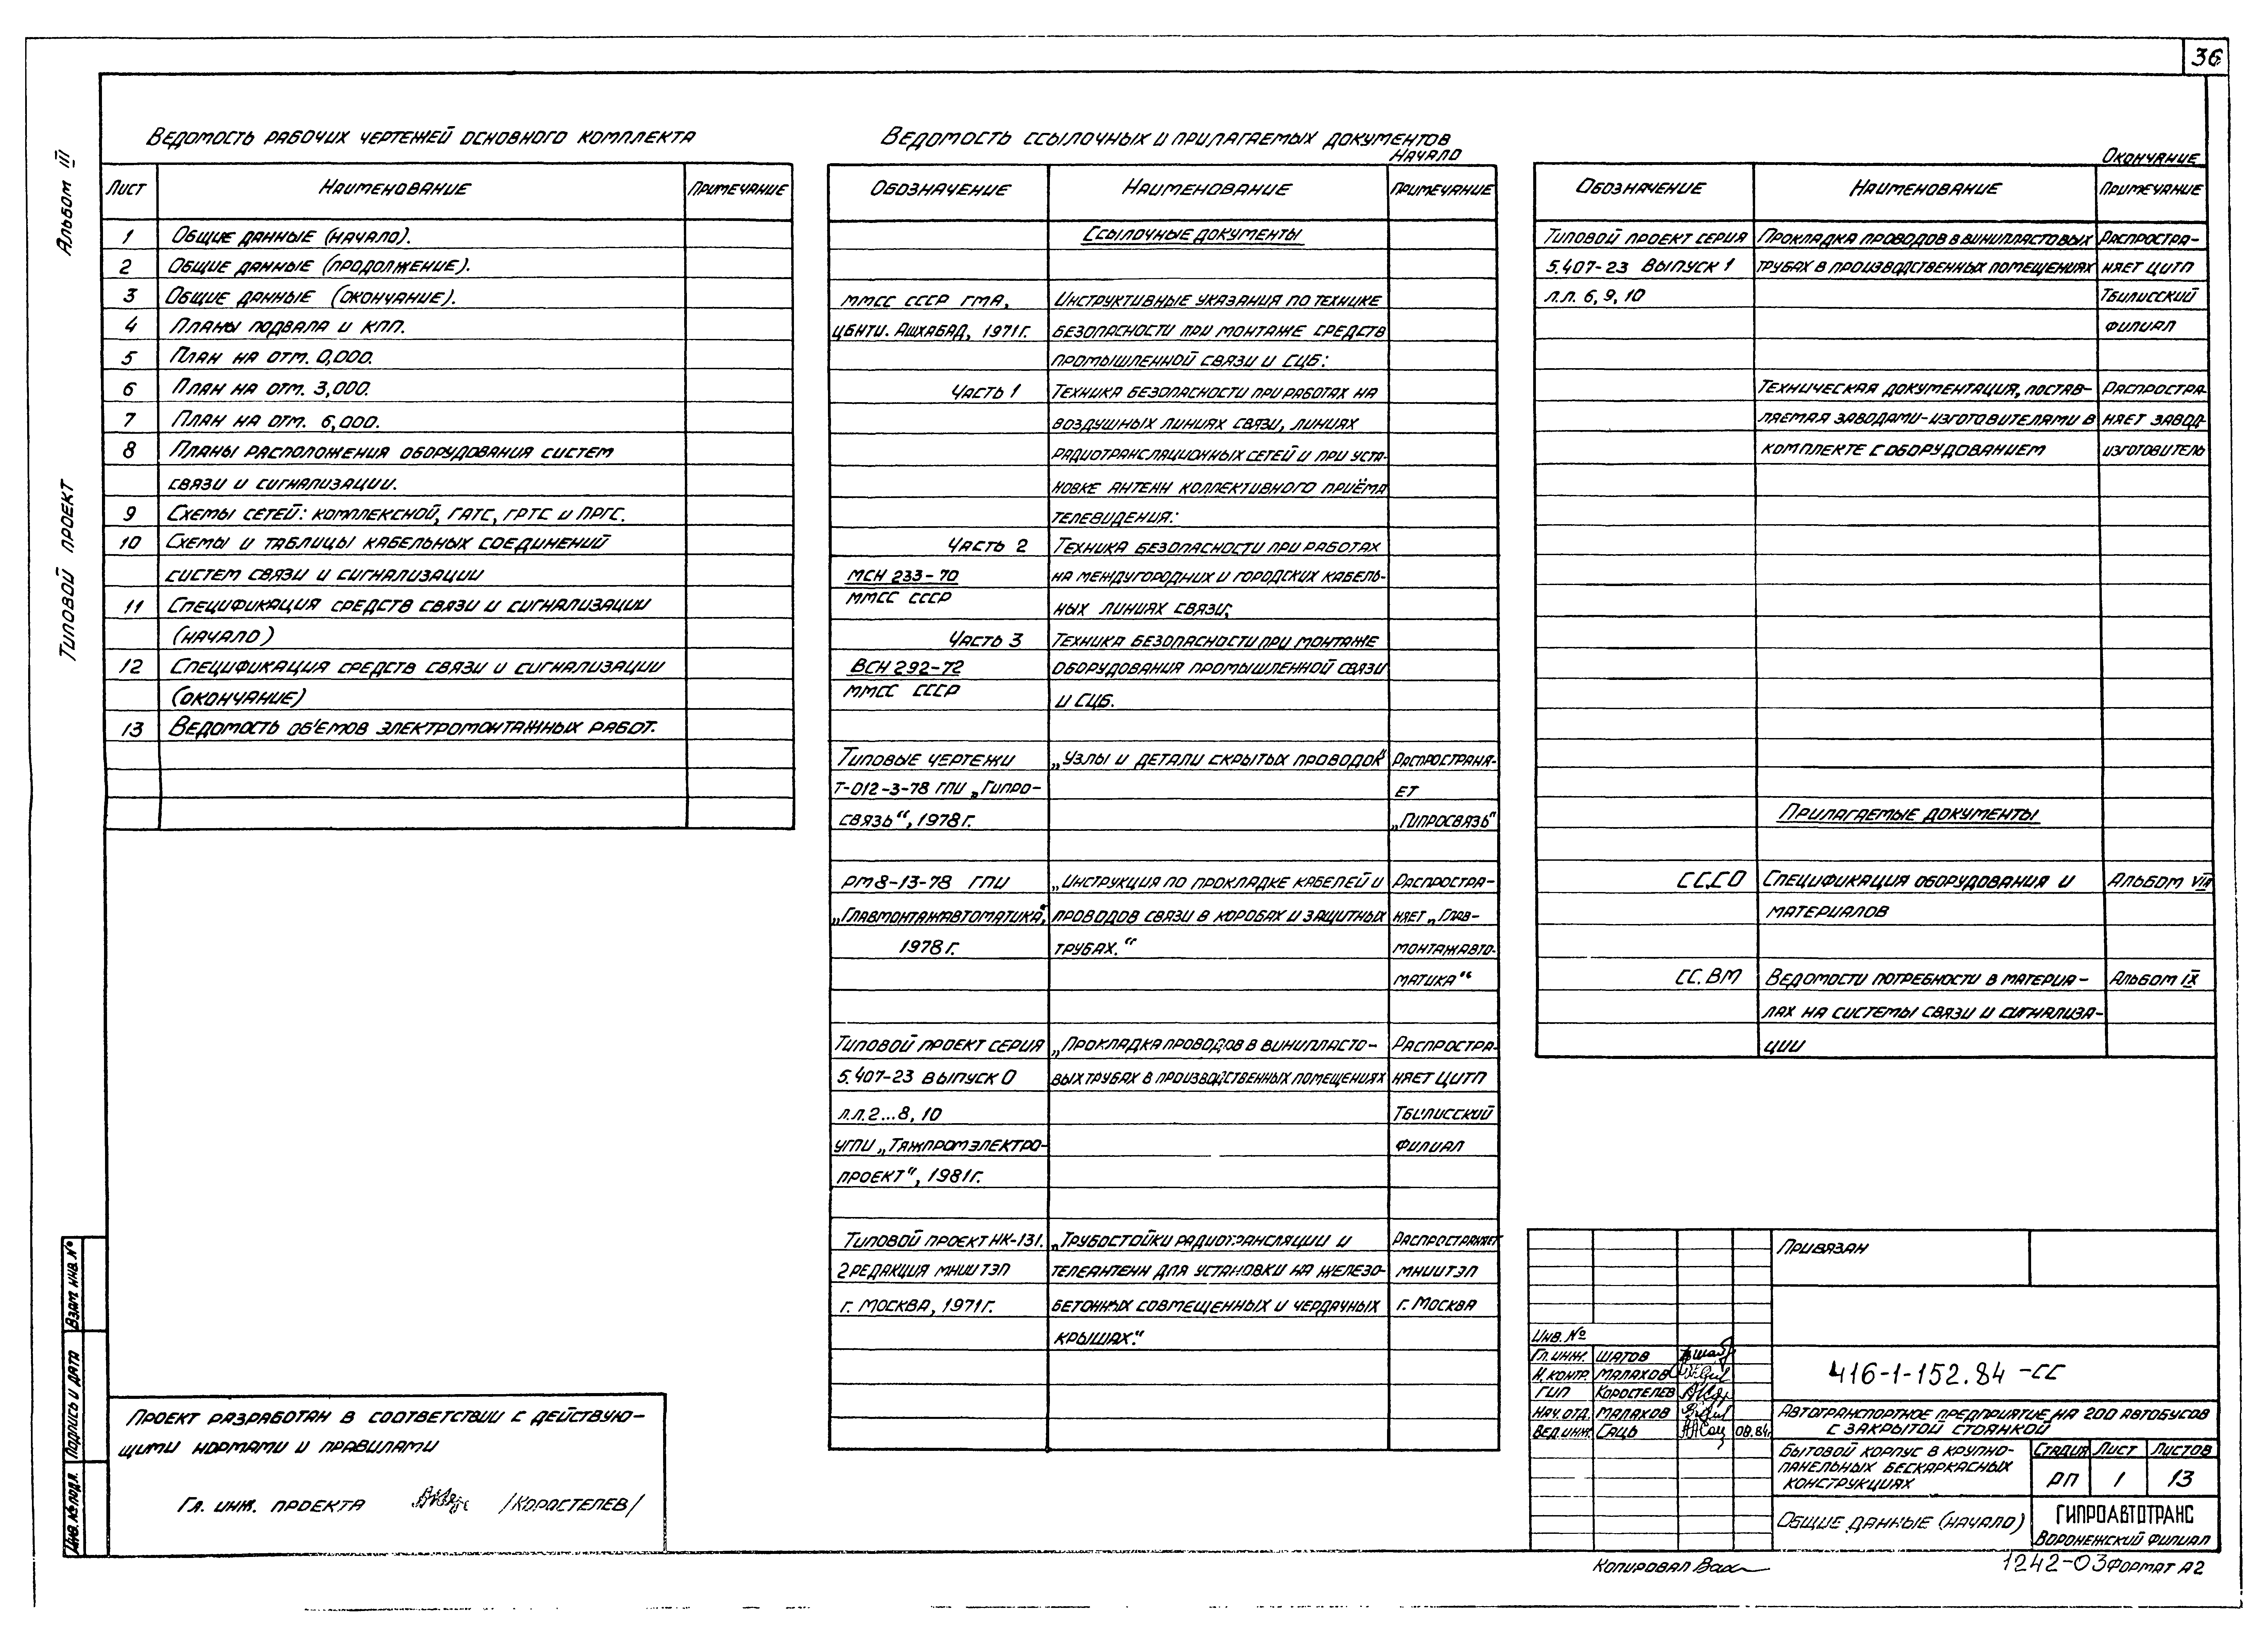 36
Альбом III
Типовой проект
Ведомость рабочих чертежей основного комплекта
Лист Наименование Примечание
1 Общие данные (начало).
2 Общие данные (продолжение).
3 Общие данные (окончание).
4 Планы подвала и КПП.
5 План на отм. 0,000.
6 План на отм. 3,000.
7 План на отм. 6,000.
8 Планы расположения оборудования систем
связи и сигнализации.
9 Схемы сетей: комплексной, ГАТС, ГРТС и ПРГС.
10 Схемы и таблицы кабельных соединений
систем связи и сигнализации
11 Спецификация средств связи и сигнализации
(начало)
12 Спецификация средств связи и сигнализации
(окончание)
13 Ведомость об'емов электромонтажных работ.
Ведомость ссылочных и прилагаемых документов
Начало
Обозначение Наименование Примечание
Ссылочные документы
ММСС СССР ГМА, Инструктивные указания по технике
ЦБНТИ. Ашхабад, 1971г. безопасности при монтаже средств
промышленной связи и СЦБ:
Часть 1 Техника безопасности при работах на
воздушных линиях связи, линиях
радиотрансляционных сетей и при уста-
новке антенн коллективного приёма
телевидения:
Часть 2 Техника безопасности при работах
МСН 233-70 на междугородних и городских кабель-
ММСС СССР
ных линиях связи;
Часть 3 Техника безопасности при монтаже
ВСН 292-72 оборудования промышленной связи
ММСС СССР и СЦБ.
Типовые чертежи „Узлы и детали скрытых проводок“ Распространя-
Т-012-3-78 ГПИ „Гипро- ет
связь“, 1978г. „Гипросвязь“
РМ8-13-78 ГПИ „Инструкция по прокладке кабелей и Распростра-
„Главмонтажавтоматика“, проводов связи в коробах и защитных няет „Глав-
1978г. трубах.“ монтажавто-
матика“
Типовой проект серия „Прокладка проводов в винипласто- Распростра-
5.407-23 выпуск 0 вых трубах в производственных помещениях няет ЦИТП
л.л.2...8, 10 Тбилисский
УГПИ „Тяжпромэлектро- филиал
проект“, 1981г.
Типовой проект НК-131. „Трубостойки радиотрансляции и Распространяет
2 редакция МНИИТЭП телеантенн для установки на железо- МНИИТЭП
г. Москва, 1971г. бетонных совмещенных и чердачных г. Москва
крышах.“
Окончание
Обозначение Наименование Примечание
Типовой проект серия Прокладка проводов в винипластовых Распростра-
5.407-23 Выпуск 1 трубах в производственных помещениях няет ЦИТП
л.л. 6, 9, 10 Тбилисский
филиал
Техническая документация, постав- Распростра-
ляемая заводами-изготовителями в няет завод-
комплекте с оборудованием изготовитель
Прилагаемые документы
СС.СО Спецификация оборудования и Альбом VIII
материалов
СС.ВМ Ведомости потребности в материа- Альбом IX
лах на системы связи и сигнализа-
ции
Проект разработан в соответствии с действую-
щими нормами и правилами
Гл. инж. проекта /Коростелев/
Взам инв. №
Подпись и дата
Инв. № подл.
Привязан
Инв. №
Гл. инж. Шатов
Н. контр. Малахов
ГИП Коростелев
Нач. отд. Малахов
Вед. инж. Саць 08.84г.
416-1-152.84 -СС
Автотранспортное предприятие на 200 автобусов
с закрытой стоянкой
Бытовой корпус в крупно-
панельных бескаркасных
конструкциях
Стадия Лист Листов
РП 1 13
Общие данные (начало)
ГИПРОАВТОТРАНС
Воронежский филиал
Копировал
1242-03 Формат А2